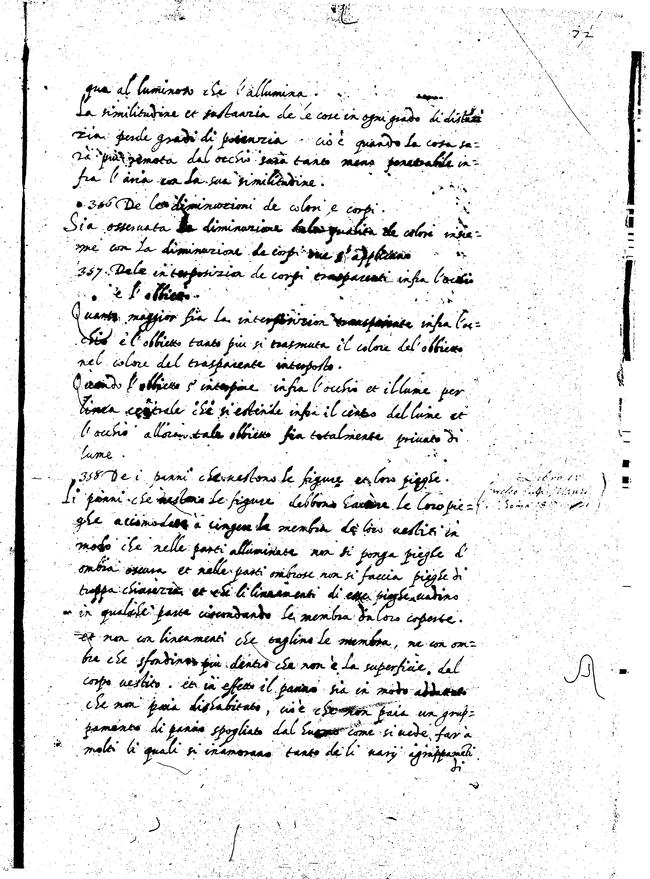 qua al luminoso che l'allumina.
La similitudine et sustanzia de le cose in ogni grado di distan
zia perde gradi di potenzia cioè quando la cosa sa=
rà più remota dal occhio sarà tanto meno penetrabile in=
fra l'aria con la sua similitudine.
De le diminuzioni de colori e corpi.
Sia osservata la diminuzione de colori insie=
me con La diminuzione de corpi
357. Dele interposizion de corpi trasparenti infra l'occhio
e l'obbietto.
Quanto maggior fia La interposizion trasparente infra l'oc=
chio e l'obbietto tanto più si trasmuta il colore del obbietto
nel colore del trasparente interposto.
Quando l'obbietto s'interpone infra l'occhio et il lume per
linea centrale che si estende infra il centro del lume et
l'occhio allora tale obbietto fia totalmente privato di
lume.
358 De i panni che vestono le figure et loro pieghe.
Li panni che vestono le figure debbono havere le loro pie=
ghe accomodate à cingere le membra de loro vestiti in
modo che nelle parti alluminate non si ponga pieghe d'
ombra oscura et nelle parti ombrose non si faccia pieghe di
troppa chiarezza et che li lineamenti di esse pieghe vadino
in qualche parte circondando le membra da loro coperte.
et non con lineamenti che taglino le membra, ne con om=
bre che sfondino più dentro che non è la superficie, dal
corpo vestito. et in effetto il panno sia in modo adattato
che non paia disabitato, cioè che non paia un grup=
pamento di panno spogliato dal huomo come si vede far à
molti li quali si inamorano tanto de li varij agruppameti
di